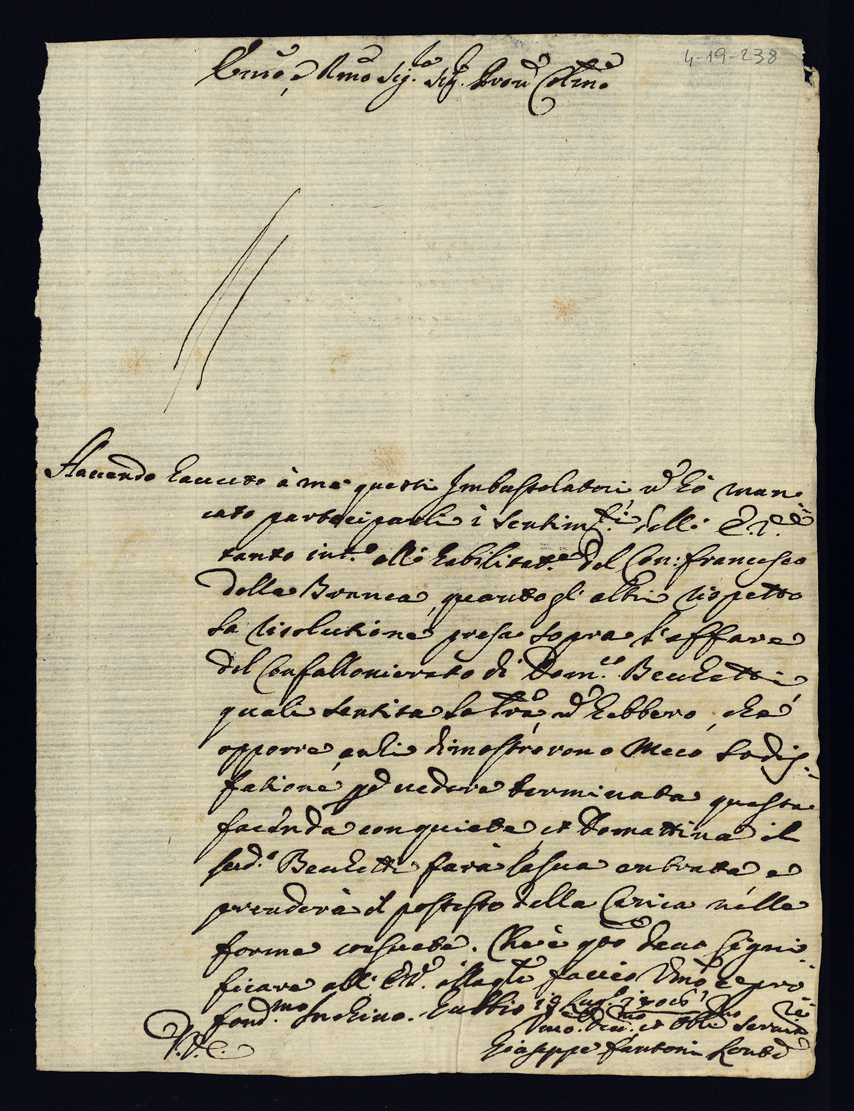 4-19-238
Emo, e Rmo Sig.r Sig. Pron Colmo
Havendo havuto à me questi Imbustolatori n hò man
cato partecipareli i sentim.ti delli E.V.
tanto int.o alle habilitat.e del Con: Francesco
della Branca, quanto gl'altri rispetto
la risolutione presa sopra l'affare
del Confallonierato di Dom.co Becchetti
quali sentita la Tra, n hebbero che
opporre, anzi dimostrorono meco sodis-
fatione p vedere terminata questa
facenda con quiete et Domattina il
sud.o Becchetti farà la sua entrata e
prenderà il possesso della Carica nelle
forme consuete. Che è qto devo signi
ficare all' EV. alla qle faccio Umo, e pro
fond.mo Inchino. Gubbio 19 Lug.
Umo. Dev. et Obl. Servit.re
V.E. Giuseppe Fantoni